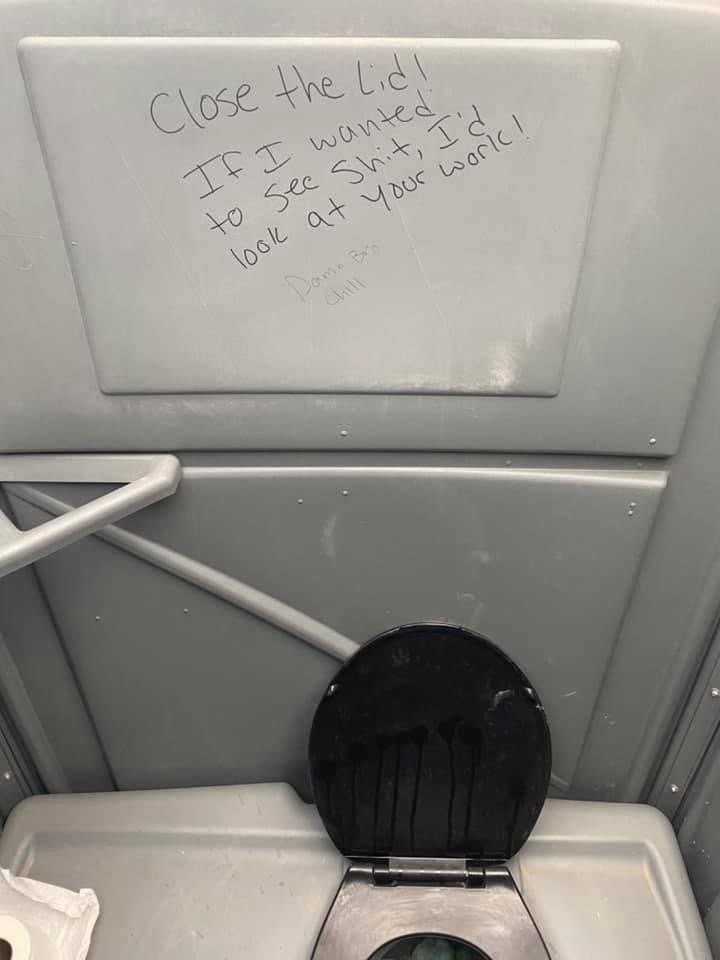 Close the Lid!
If I wanted
to see Shit, I'd
look at your work!
Damn Bro
Chill